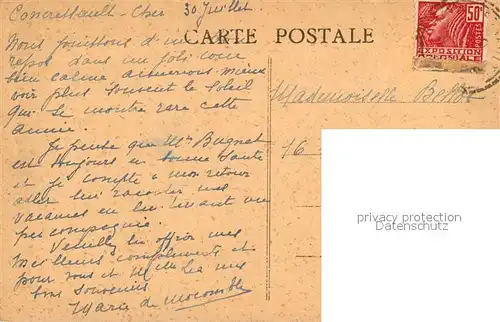 Concressault - Cher 30 Juillet.
CARTE POSTALE
Nous jouissons d'un
repos dans un joli coin
bien calme aimerions mieux
voir plus souvent le soleil
qui se montre rare cette
année.
Je pense que Mr Bugnet
est toujours en bonne santé
et je compte à mon retour
aller lui raconter mes
vacances en lui tenant un
peu compagnie.
Veuillez lui offrir mes
meilleurs compliments et
pour vous et Melle mes
bons souvenirs
Marie de
50c
POSTES
EXPOSITION
COLONIALE
Mademoiselle
16
privacy protection
Datenschutz